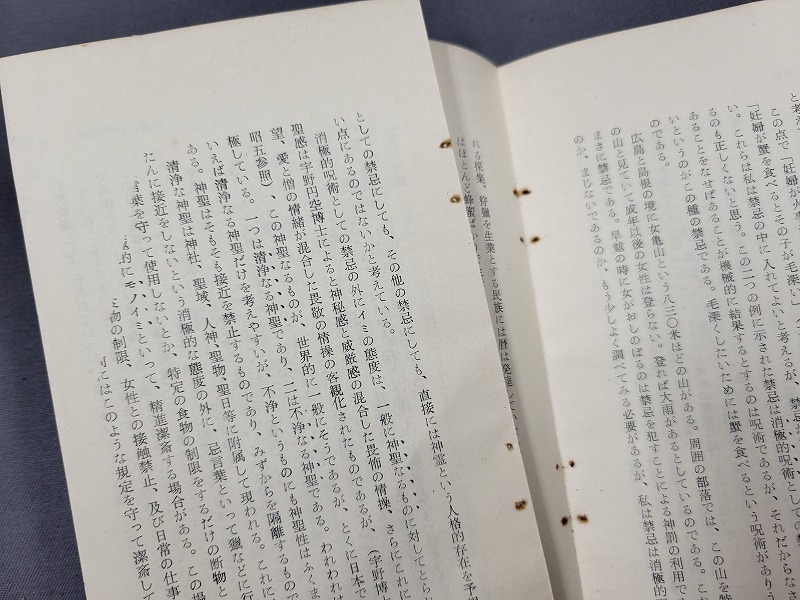 この点で「妊婦が火事
「妊婦が蟹を食べるとその子が毛深い」
い。これらは私は禁忌の中に入れてよいと考えるが、禁忌が、それだからなさ
るのも正しくないと思う。この二つの例に示された禁忌は消極的呪術としての
あることをなせばあることが機械的に結果するとするのは呪術であるが、
いというのがこの種の禁忌である。毛深くしたいためには蟹を食べるという呪術がありう
のである。
広島と島根の境に女亀山という八三〇米ほどの山がある。周囲の部落では、この山を特
の山と見ていて成年以後の女性は登らない。登れば大雨があるとしているのである。これ
まさに禁忌である。旱魃の時に女がおしのぼるのは禁忌を犯すことによる神罰の利用であ
のか、まじないであるのか、もう少しよく調べてみる必要があるが、私は禁忌は消極的
れる採集、狩猟を生業とする民族には暦は発達して
はほとんど蜂蜜
としての禁忌にしても、その他の禁忌にしても、直接には神霊という人格的存在を予想
い点にあるのではないかと考えている。
消極的呪術としての禁忌の外にイミの態度は、一般に神聖なるものに対してとられ
聖感は宇野円空博士によると神秘感と威厳感の混合した畏怖の情操、さらにこれに
望、愛と憎の情緒が混合した畏敬の情操の客観化されたものであるが、（宇野博
昭五参照）、この神聖なるものが、世界的に一般にそうであるが、とくに日本で
極している。一つは清浄なる神聖であり、二は不浄なる神聖である。われわれは
いえば清浄なる神聖だけを考えやすいが、不浄というものにも神聖性はふくま
ある。神聖はそもそも接近を禁止するものであり、みずからを隔離するもので
清浄な神聖は神社、聖域、人神聖物、聖日等に附属して現われる。これに
たんに接近をしないという消極的な態度の外に、忌言葉といって猟などに行
言葉を守って使用しないとか、特定の食物の制限をするだけの断物と
的にモノイミといって、精進潔斎する場合がある。この場
物の制限、女性との接触禁止、及び日常の仕事
にはこのような規定を守って潔斎して